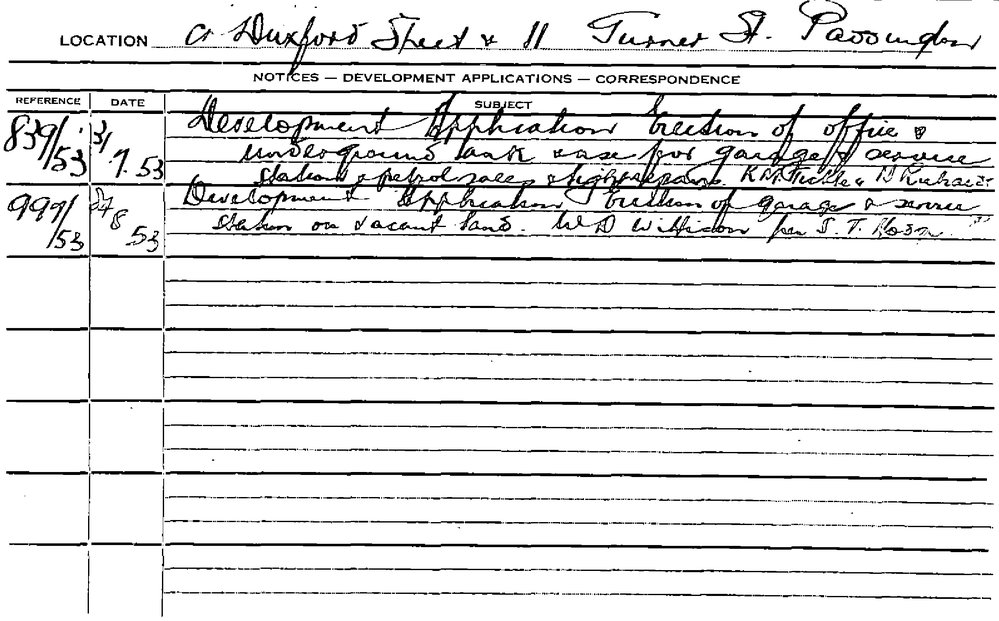 LOCATION Cr Duxford Street & 11 Turner St. Paddington
NOTICES — DEVELOPMENT APPLICATIONS — CORRESPONDENCE
REFERENCE DATE SUBJECT
839/53 31/7.53 Development Application Erection of office &
underground tank & use for garage & service
station & petrol sales & light repairs. & Richards
999/53 8 53 Development Application Erection of garage & service
station on vacant land. W D per S. T.